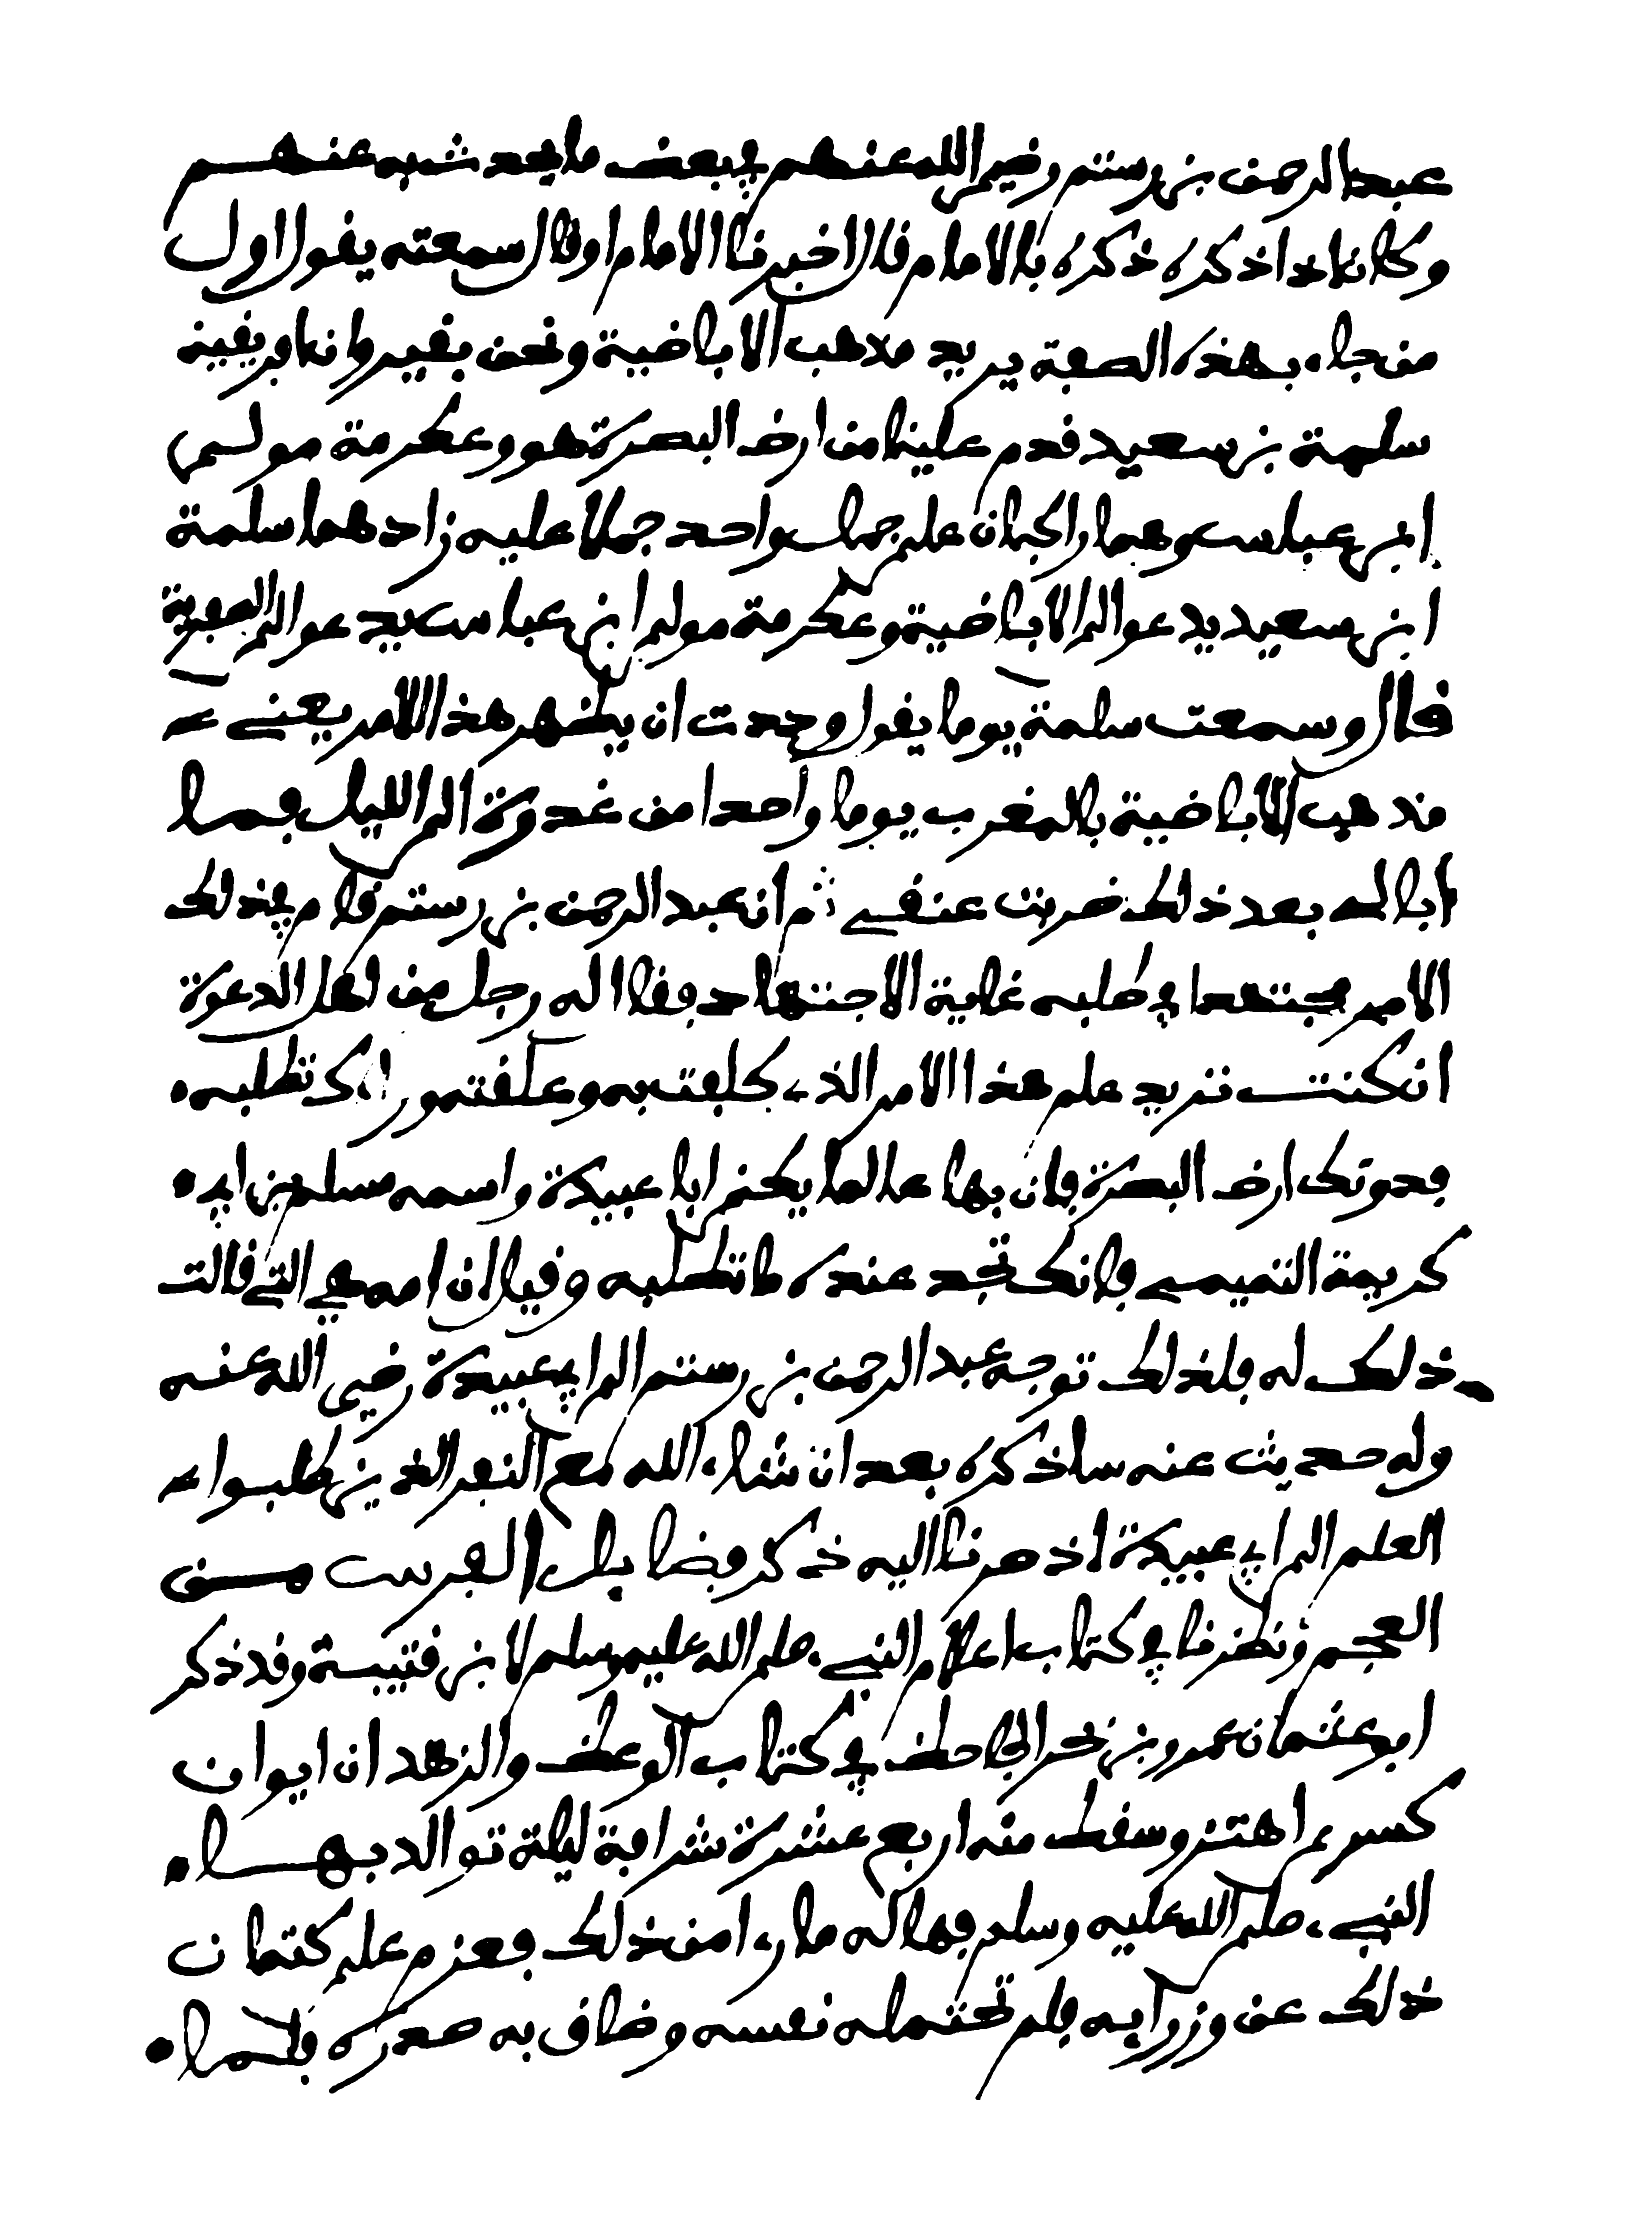 عبد الرحمن بن رستم رضي الله عنهم في بعض ما يحدث به عنهم
وكان اذا ذكره ذكره بالامام قال اخبرنا الامام او قال سمعته يقول اول
من جاء بهذه الصفة يريد مذهب الاباضية ونحن بقيروان افريقية
سلمة بن سعيد قدم علينا من ارض البصرة هو وعكرمة مولى
ابن عباس وهما راكبان على جمل واحد حملا عليه زادهما سلمة
ابن سعيد يدعو الى الاباضية وعكرمة مولى ابن عباس يدعو الى الصفرية
قال وسمعت سلمة يوما يقول وددت ان يظهر هذا الامر يعني
مذهب الاباضية بالمغرب يوما واحدا من غدوة الى الليل فما
ابالي بعد ذلك ضربت عنقي ثم ان عبد الرحمن بن رستم قام في ذلك
الامر مجتهدا في طلبه غاية الاجتهاد فقال له رجل من اهل الدعوة
ان كنت تريد علم هذا الامر الذي كلفت به وعلقتموراك تطلبه
فدونك ارض البصرة فان بها عالما يكنى ابا عبيدة واسمه مسلم بن ابي
كريمة التميمي فانك تجد عنده ما تطلبه وقيل ان امه هي التي قالت
ذلك له فلذلك توجه عبد الرحمن بن رستم الى ابي عبيدة رضي الله عنه
وله حديث عنه ساذكره بعد ان شاء الله مع النفر الذين طلبوا
العلم الى ابي عبيدة اذ صرنا اليه ذكر فضايل الفرس من
العجم ونظرنا في كتاب اعلام النبيء صلى الله عليه وسلم لابن قتيبة وقد ذكر
ابو عثمان عمرو بن بحر الجاحظ في كتاب الوعظ والزهد ان ايوان
كسرى اهتز وسقط منه اربع عشرة شرافة ليلة توالد بها
النبيء صلى الله عليه وسلم فهاله ما رءا من ذلك فعزم على كتمان
ذلك عن وزرايه فلم تحتمله نفسه وضاق به صدره فلما